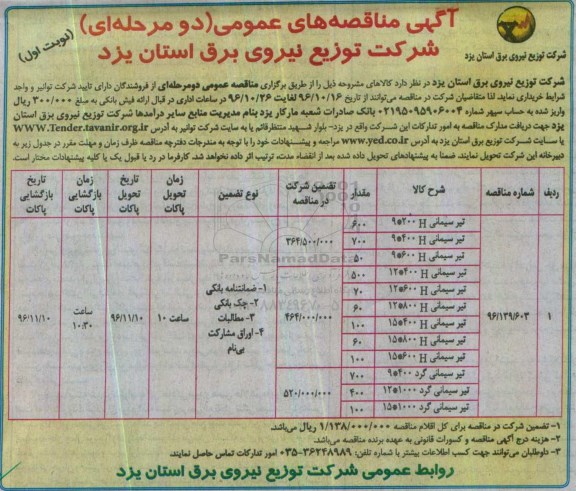 آگهی مناقصه‌های عمومی(دو مرحله‌ای)
(نوبت اول)
شرکت توزیع نیروی برق استان یزد
شرکت توزیع نیروی برق استان یزد
شرکت توزیع نیروی برق استان یزد در نظر دارد کالاهای مشروحه ذیل را از طریق برگزاری مناقصه عمومی دومرحله‌ای از فروشندگان دارای تایید شرکت توانیر و واجد
شرایط خریداری نماید، لذا متقاضیان شرکت در مناقصه می‌توانند از تاریخ ۹۶/۱۰/۱۶ لغایت ۹۶/۱۰/۲۶ در ساعات اداری در قبال ارائه فیش بانکی به مبلغ ۳۰۰/۰۰۰ ریال
واریز شده به حساب سپهر شماره ۰۲۱۹۵۰۹۵۹۰۶۰۰۴ بانک صادرات شعبه مارکار یزد بنام مدیریت منابع سایر درآمدها شرکت توزیع نیروی برق استان
یزد جهت دریافت مدارک مناقصه به امور تدارکات این شرکت واقع در یزد- بلوار شهید منتظرقائم یا به سایت شرکت توانیر به آدرس WWW.Tender.tavanir.org.ir
یا سایت شرکت توزیع برق استان یزد به آدرس www.yed.co.ir مراجعه و پیشنهادات خود را با توجه به مندرجات دفترچه مناقصه ظرف زمان و مهلت مقرر در جدول زیر به
دبیرخانه این شرکت تحویل نمایند، ضمنا به پیشنهادهای تحویل داده شده بعد از انقضاء مدت، ترتیب اثر داده نخواهد شد. کارفرما در رد یا قبول یک یا کلیه پیشنهادات مختار است.
ردیف | شماره مناقصه | شرح کالا | مقدار | تضمین شرکت در مناقصه | نوع تضمین | زمان تحویل پاکات | تاریخ تحویل پاکات | زمان بازگشایی پاکات | تاریخ بازگشایی پاکات
۱ | ۹۶/۱۳۹/۶۰۳
تیر سیمانی H ۹*۲۰۰ | ۶۰۰
تیر سیمانی H ۹*۴۰۰ | ۷۰۰
تیر سیمانی H ۹*۶۰۰ | ۵۰
۳۶۴/۵۰۰/۰۰۰
تیر سیمانی H ۱۲*۴۰۰ | ۵۰۰
تیر سیمانی H ۱۲*۶۰۰ | ۷۰
تیر سیمانی H ۱۲*۸۰۰ | ۶۰
تیر سیمانی H ۱۵*۴۰۰ | ۱۰۰
تیر سیمانی H ۱۵*۸۰۰ | ۶۰
تیر سیمانی H ۱۵*۶۰۰ | ۱۰۰
۴۶۴/۰۰۰/۰۰۰
تیر سیمانی گرد ۹*۴۰۰ | ۷۰۰
تیر سیمانی گرد ۱۲*۱۰۰۰ | ۴۰۰
تیر سیمانی گرد ۱۵*۱۰۰۰ | ۱۰۰
۵۲۰/۰۰۰/۰۰۰
۱- ضمانتنامه بانکی
۲- چک بانکی
۳- مطالبات
۴- اوراق مشارکت
بی‌نام
ساعت ۱۰
۹۶/۱۱/۱۰
ساعت
۱۰:۳۰
۹۶/۱۱/۱۰
ParsNamadData
۱- تضمین شرکت در مناقصه برای کل اقلام مناقصه ۱/۱۳۸/۰۰۰/۰۰۰ ریال می‌باشد.
۲- هزینه درج آگهی مناقصه و کسورات قانونی به عهده برنده مناقصه می‌باشد.
۳- داوطلبان می‌توانند جهت کسب اطلاعات بیشتر با شماره تلفن: ۳۶۲۴۸۹۸۹-۰۳۵ امور تدارکات تماس حاصل نمایند.
روابط عمومی شرکت توزیع نیروی برق استان یزد